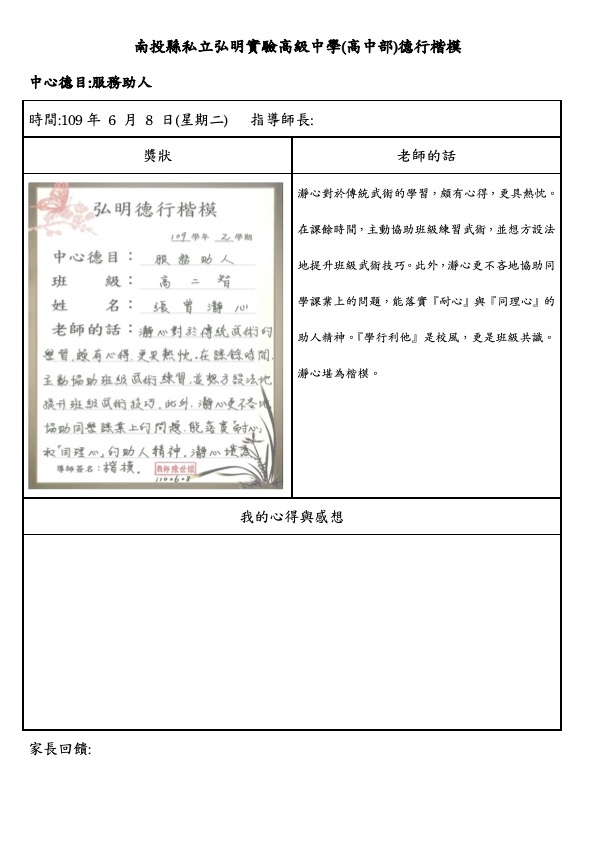 南投縣私立弘明實驗高級中學(高中部)德行楷模
中心德目:服務助人
時間:109 年 6 月 8 日(星期二) 指導師長:
獎狀
老師的話
弘明德行楷模
109 學年 2 學期
中心德目：服務助人
班 級：高二智
姓 名：張曾瀞心
老師的話：瀞心對於傳統武術的
學習,頗有心得,更具熱忱。在課餘時間,
主動協助班級武術練習,並想方設法地
提升班級武術技巧。此外,瀞心更不吝地
協助同學課業上的問題,能落實「耐心」
和「同理心」的助人精神。瀞心堪為
導師簽名：楷模。
1100608
瀞心對於傳統武術的學習，頗有心得，更具熱忱。
在課餘時間，主動協助班級練習武術，並想方設法
地提升班級武術技巧。此外，瀞心更不吝地協助同
學課業上的問題，能落實『耐心』與『同理心』的
助人精神。『學行利他』是校風，更是班級共識。
瀞心堪為楷模。
我的心得與感想
家長回饋: